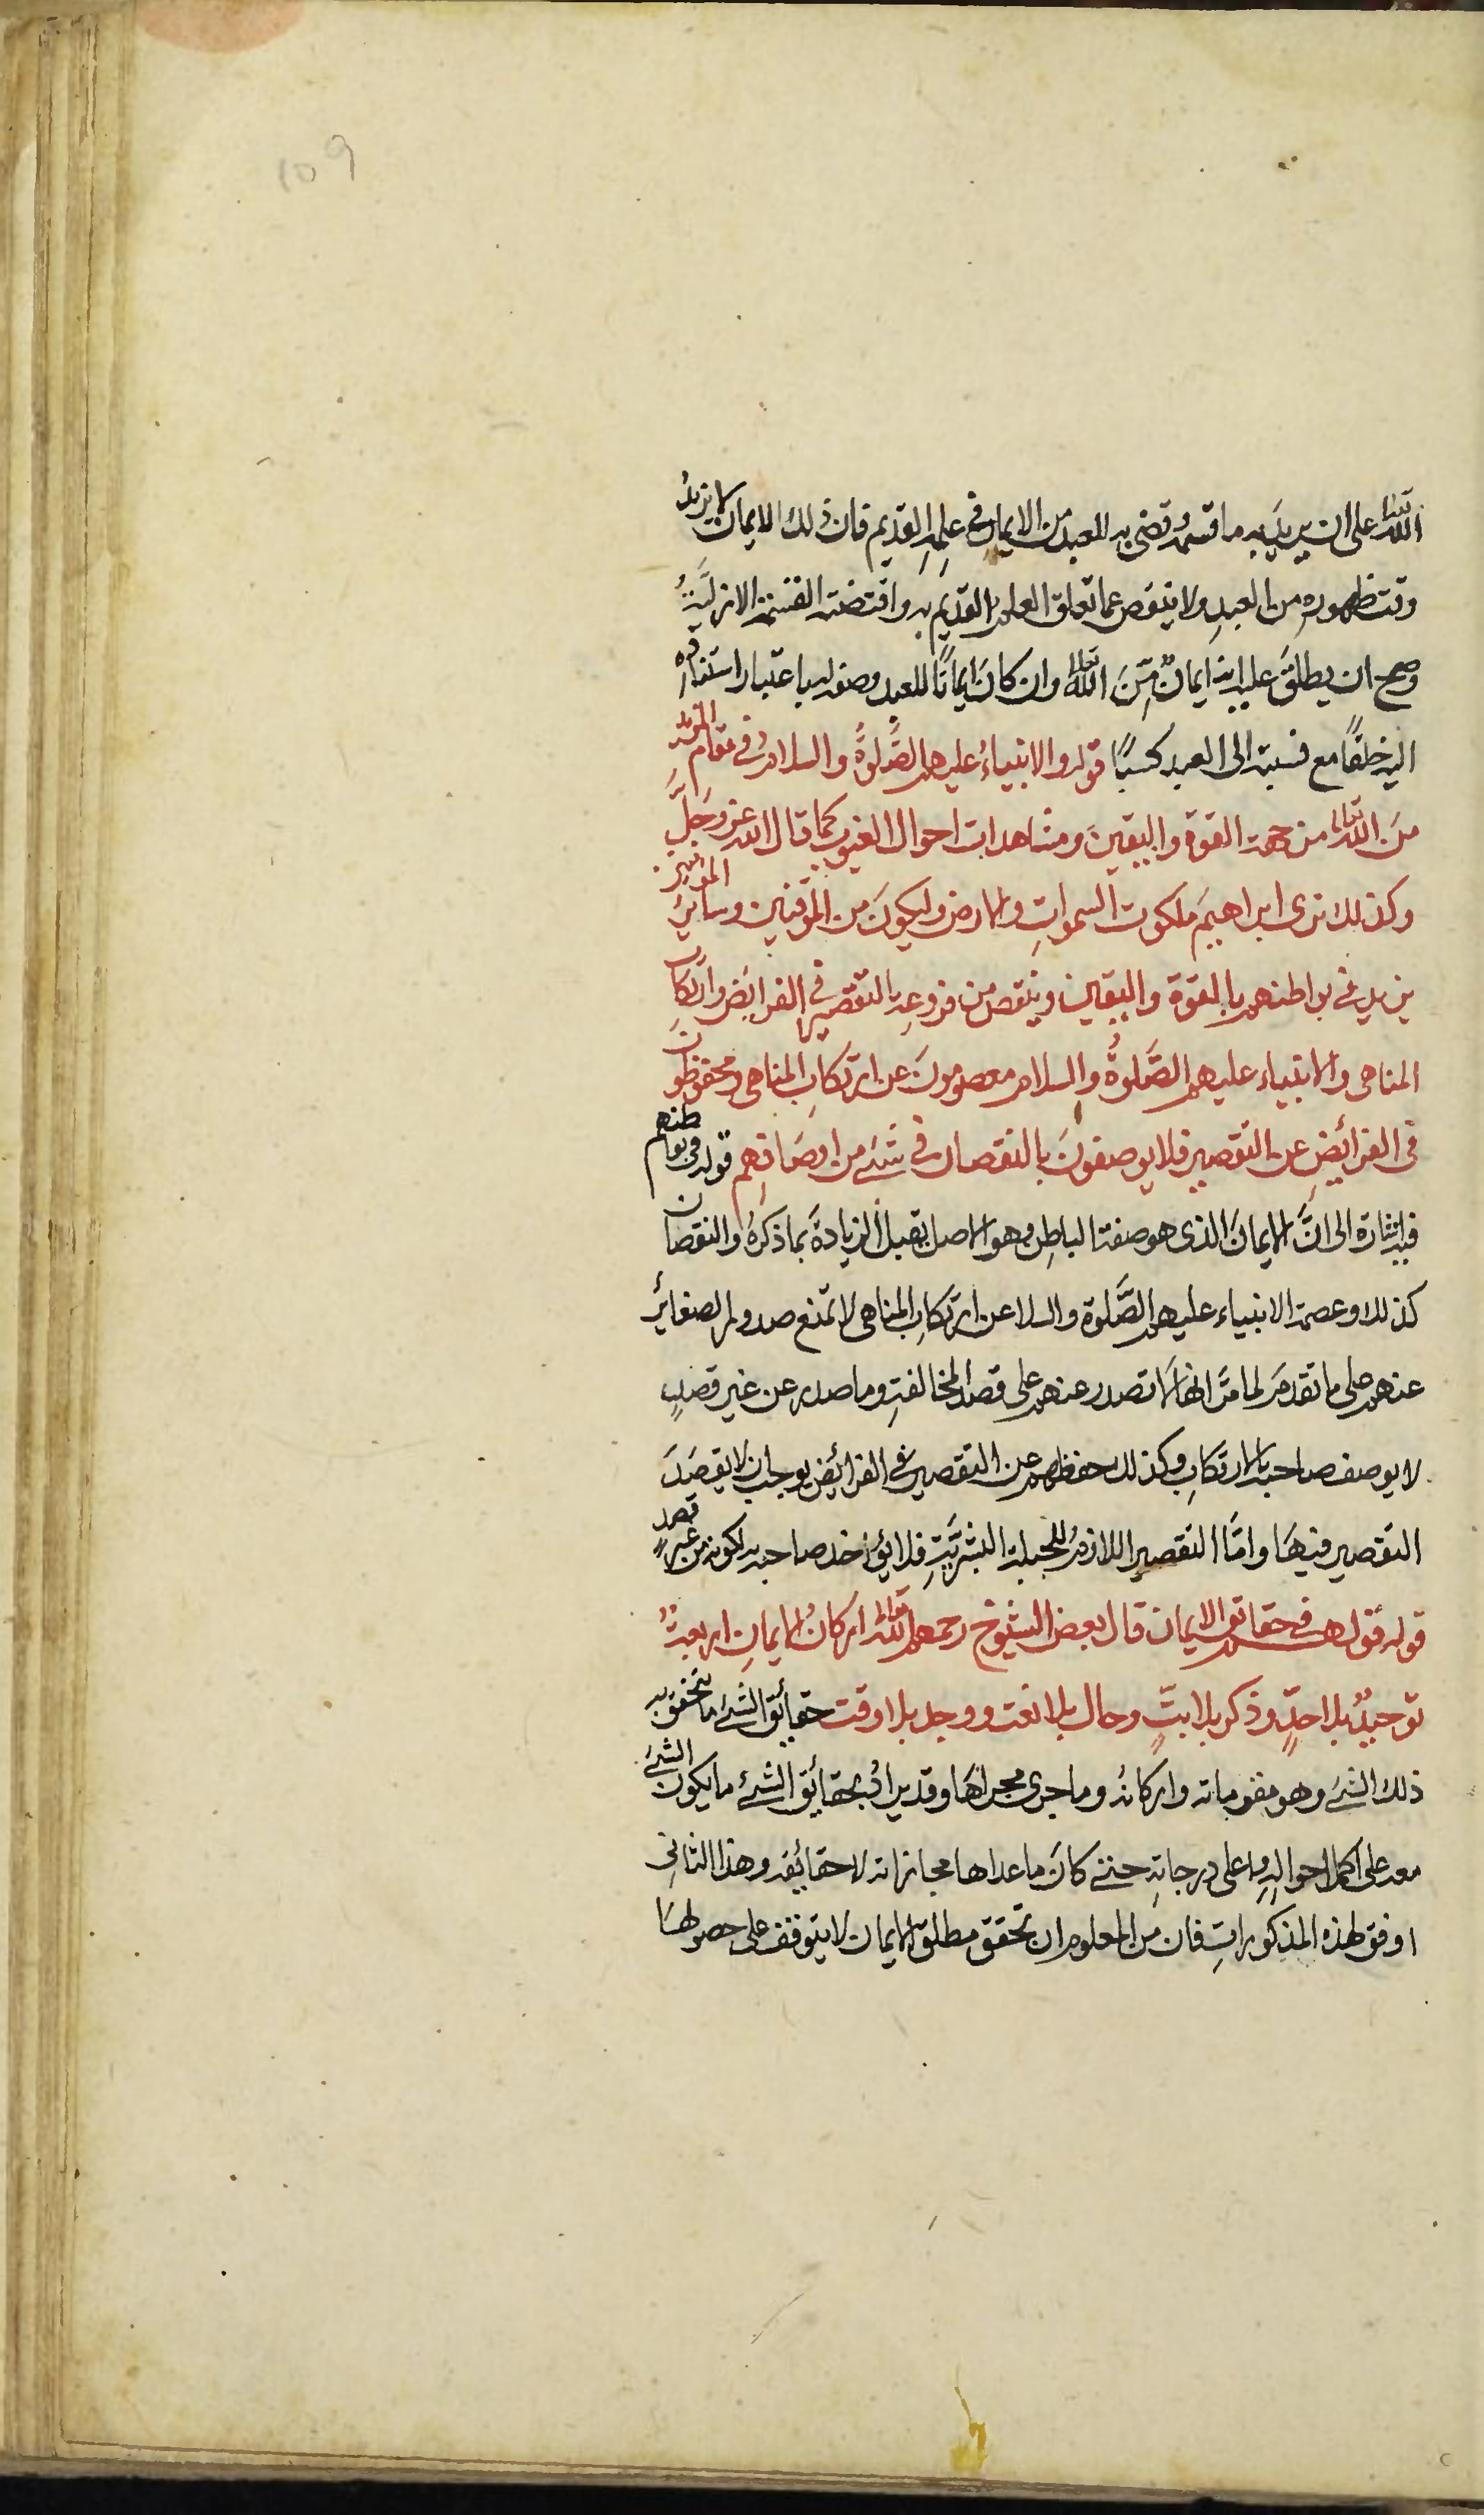 109
الله تعالى على ان يريد به ما قسمه وقضى به للعبد من الايمان في علمه القديم فان ذلك الايمان لا يزيد
وقت ظهوره من العبد ولا ينقص عما تعلق العلم القديم به واقتضته القسمة الازلية
وصح ان يطلق عليه انه ايمانٌ مِنَ الله تعالى وان كانَ ايمانًا للعبد وصفة له باعتبار استناده
اليه خلقًا مع نسبته الى العبد كسبًا قوله والانبياءُ عليهم الصَّلوةُ والسلامُ في مقام المزيد
منَ الله تعالى من جهة القوة واليقينَ ومشاهدات احوال الغيوب كما قال الله عز وجَلَّ
وكذلك نرى ابراهيمَ ملكوت السمواتِ والارض وليكونَ من الموقنين وسائرُ المؤمنين
يزيد في بواطنهم بالقوة واليقين وينقص من فروعه بالتقصير في الفرائض وارتكاب
المناهى والانبياء عليهم الصَّلوةُ والسلام معصومونَ عن ارتكابِ المناهى ومحفوظون
فى الفرائضِ عن التقصير فلا يوصفونَ بالنقصان فى شئ من اوصَافهم قوله فى بواطنهم
فيه اشارة الى انَّ الايمانَ الذى هو صفة الباطِن وهو الاصل يقبل الزيادةَ بما ذكرهُ والنقصان
كذلك وعصمة الانبياء عليهم الصَّلوة والسلا عن ارتكابِ المناهى لا تمنع صدور الصغائر
عنهم على ما تقدم لما مَرَّ انها لَا تصدر عنهم على قصد المخالفةِ وما صدر عن غير قصدٍ
لا يوصف صاحبه بالارتكابِ وكذلك حفظهم عن التقصير فى الفرائض يوجب ان لا يقصَدَ
التقصير فيهَا وامَّا التقصير اللازمُ للجبلة البشريَّةِ فلا يؤاخذ صاحبه به لكونه من غير قصدٍ
قوله قولهم فى حقائق الايمان قال بعض الشيوخ رحمهم الله تعالى اركانُ الايمانِ اربعةٌ
توحيدٌ بلا حدٍّ وذكر بلا بتٍّ وحال بلا نعت ووجد بلا وقت حقائق الشئ ما يتحقق به
ذلك الشئ وهو مقوماته واركانهُ وما جرى مجراهَا وقد يرادُ بحقائق الشئ ما يكون الشئ
معه على اكمل احوالِهِ واعلى درجاتِهِ حتى كانَ ما عداها مجازاته لا حقائقه وهذا الثانى
اوفق لهذه المذكوراتِ فان مِن المعلوم ان تحقق مطلق الايمان لا يتوقف على حصولهَا